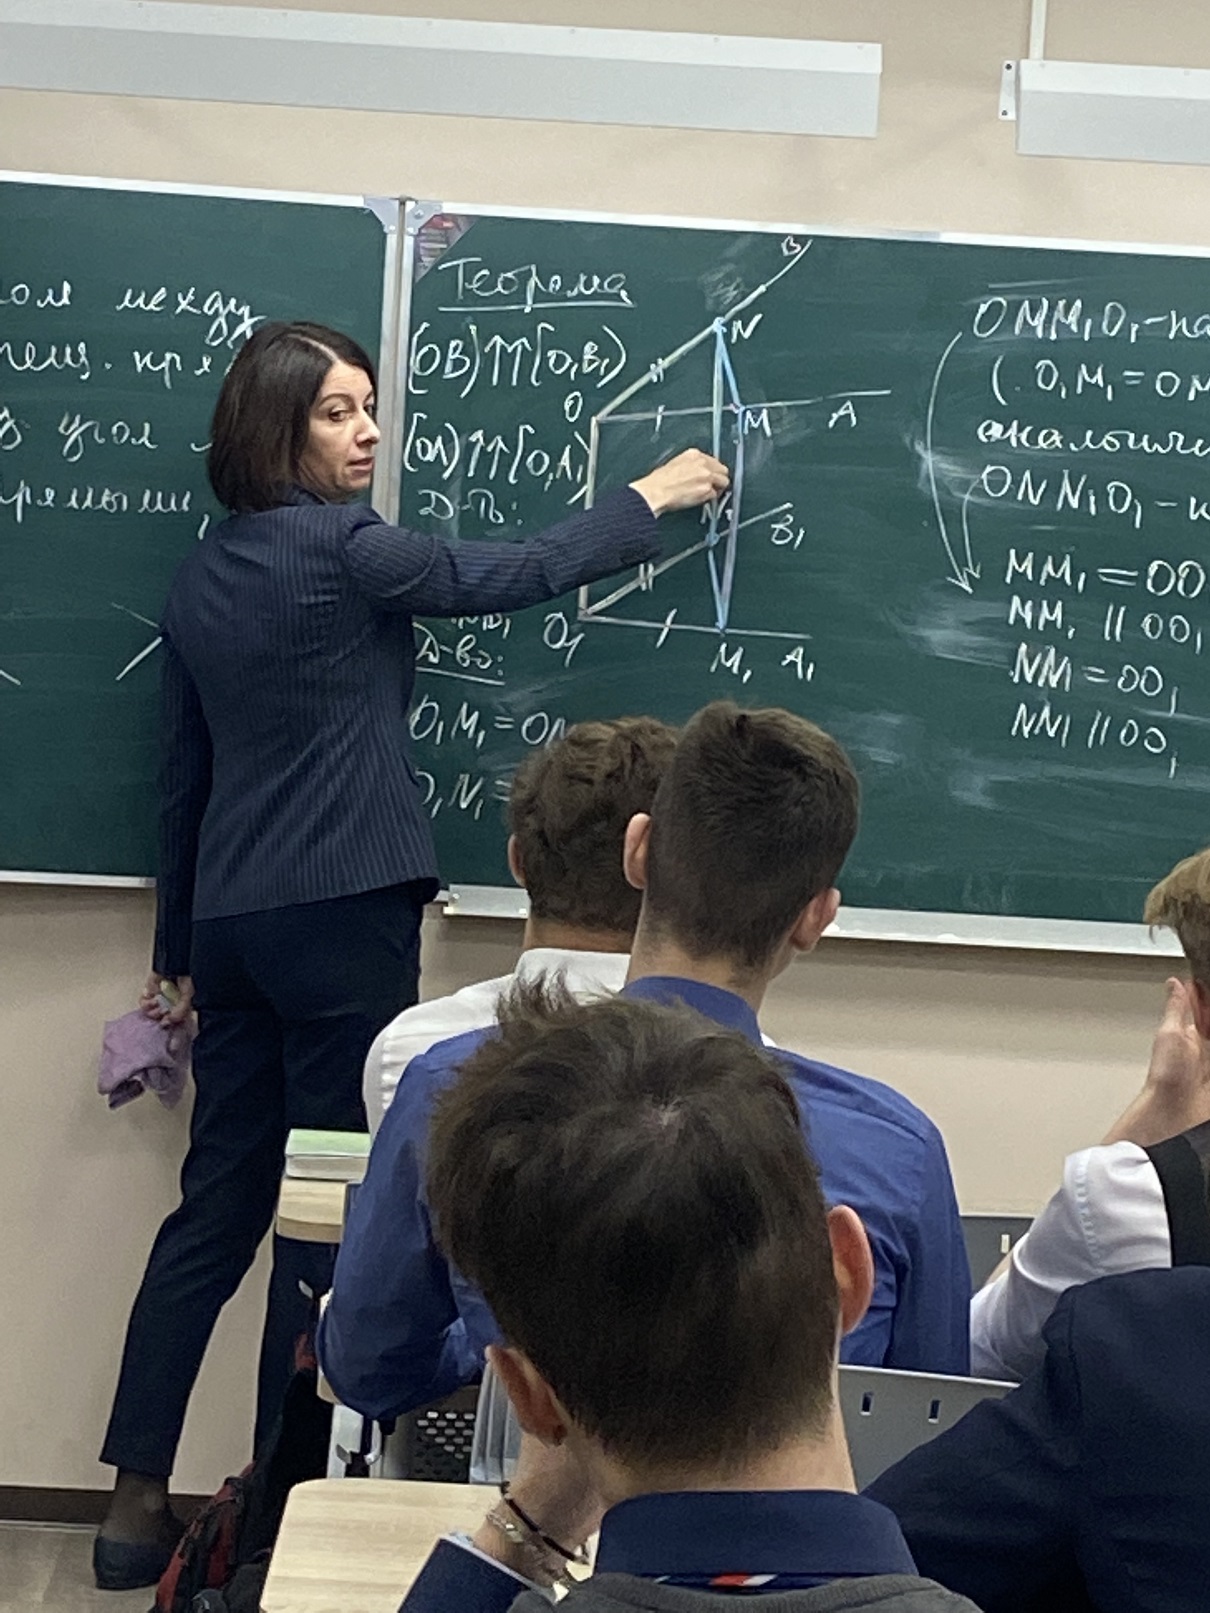 ом между
угол
Теорема
[OB)↑↑[O₁B₁)
[OA)↑↑[O₁A₁)
Д-ть:
Д-во:
O₁M₁=OM
O₁N₁=
B
N
O
M
A
N₁
B₁
O₁
M₁
A₁
OMM₁O₁-па
(. O₁M₁=OM
аналогичн
ONN₁O₁-п
MM₁=OO
MM₁ || OO₁
NN₁=OO₁
NN₁ || OO₁